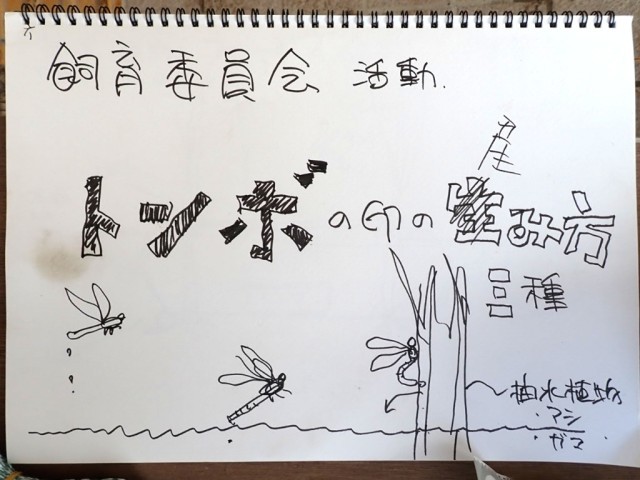 飼育委員会 活動.
産
トンボの卵の生み方
品種
抽水植物
・アシ
・ガマ